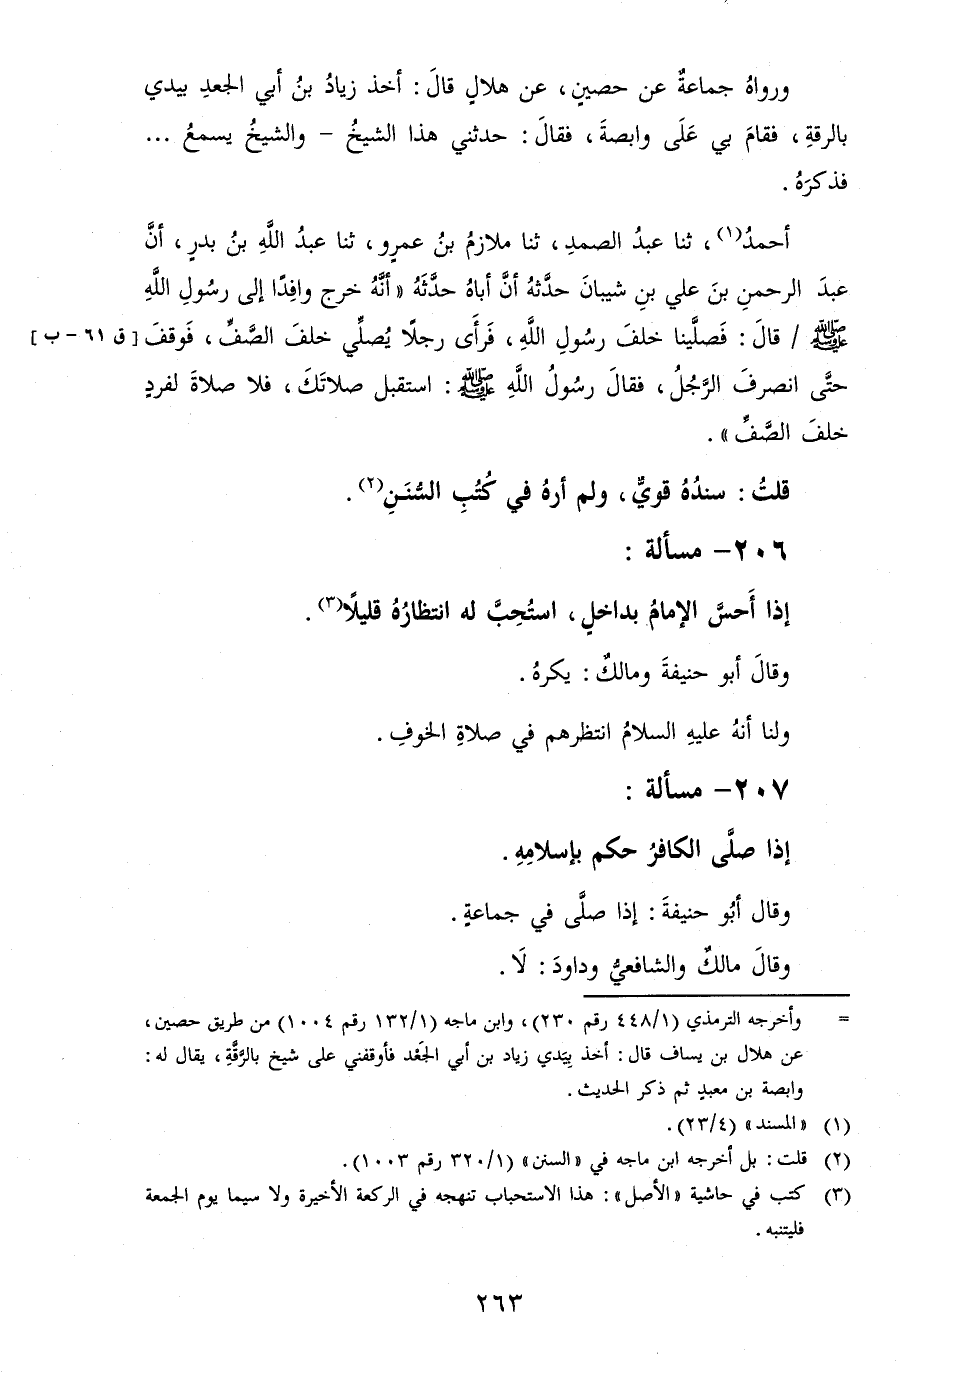 ورواهُ جماعةٌ عن حصينٍ، عن هلالٍ قالَ: أخذ زيادُ بنُ أبي الجعدِ بيدي
بالرقةِ، فقامَ بي عَلَى وابصةَ، فقالَ: حدثني هذا الشيخُ – والشيخُ يسمعُ ...
فذكرَهُ.
أحمدُ(١)، ثنا عبدُ الصمدِ، ثنا ملازمُ بنُ عمرٍو، ثنا عبدُ اللَّهِ بنُ بدرٍ، أنَّ
عبدَ الرحمنِ بنَ علي بنِ شيبانَ حدَّثهُ أنَّ أباهُ حدَّثَهُ «أنَّهُ خرج وافِدًا إلى رسُولِ اللَّهِ
ﷺ / قالَ: فَصلَّينا خلفَ رسُولِ اللَّهِ، فَرأَى رجلًا يُصلِّي خلفَ الصَّفِّ، فَوقفَ [ق ٦١ – ب]
حتَّى انصرفَ الرَّجُلُ، فقالَ رسُولُ اللَّهِ ﷺ: استقبل صلاتَكَ، فلا صلاةَ لفردٍ
خلفَ الصَّفِّ».
قلتُ: سندُهُ قويٌّ، ولم أرهُ في كُتُبِ السُّنَنِ(٢).
٢٠٦– مسألة:
إذا أَحسَّ الإمامُ بداخلٍ، استُحِبَّ له انتظارُهُ قليلًا(٣).
وقالَ أبو حنيفةَ ومالكٌ: يكرهُ.
ولنا أنهُ عليهِ السلامُ انتظرهم في صلاةِ الخوفِ.
٢٠٧– مسألة:
إذا صلَّى الكافرُ حكم بإسلامِهِ.
وقال أبُو حنيفةَ: إذا صلَّى في جماعةٍ.
وقالَ مالكٌ والشافعيُّ وداودَ: لَا.
= وأخرجه الترمذي (٤٤٨/١ رقم ٢٣٠)، وابن ماجه (١٣٢/١ رقم ١٠٠٤) من طريق حصين،
عن هلال بن يساف قال: أخذ بِيَدي زياد بن أبي الجَعْد فأوقفني على شيخ بالرَّقَّةِ، يقال له:
وابصة بن معبدٍ ثم ذكر الحديث.
(١) «المسند» (٢٣/٤).
(٢) قلت: بل أخرجه ابن ماجه في «السنن» (٣٢٠/١ رقم ١٠٠٣).
(٣) كتب في حاشية «الأصل»: هذا الاستحباب تنهجه في الركعة الأخيرة ولا سيما يوم الجمعة
فليتنبه.
٢٦٣